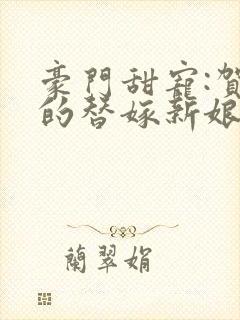 豪門甜寵:賀
的替嫁新娘
蘭翠娟